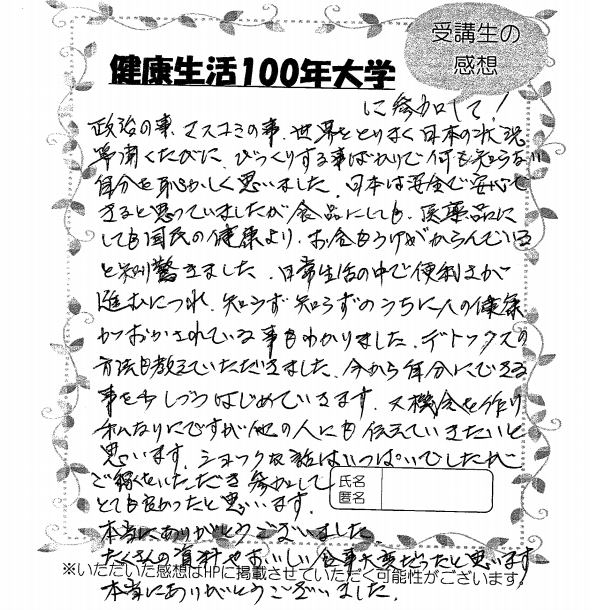 受講生の
感想
健康生活100年大学
に参加して!
政治の事、マスコミの事、世界をとりまく日本の状況
等聞くたびに、びっくりする事ばかりで何も知らない
自分を恥かしく思いました。日本は安全で安心で
きると思っていましたが食品にしても、医薬品に
しても国民の健康より、お金もうけがからんでいる
と知り驚きました。日常生活の中で便利さが
進むにつれ、知らず知らずのうちに人の健康
がおかされている事もわかりました。デトックスの
方法も教えていただきました。今から自分にできる
事を少しづつはじめていきます。又機会を作り
私なりにですが他の人にも伝えていきたいと
思います。ショックな話はいっぱいでしたがご
ご縁をいただき参加して
とても良かったと思います。
氏名
匿名
本当にありがとうございました。
たくさんの資料やおいしい食事大変だったと思います
※いただいた感想はHPに掲載させていただく可能性がございます。
本当にありがとうございました。